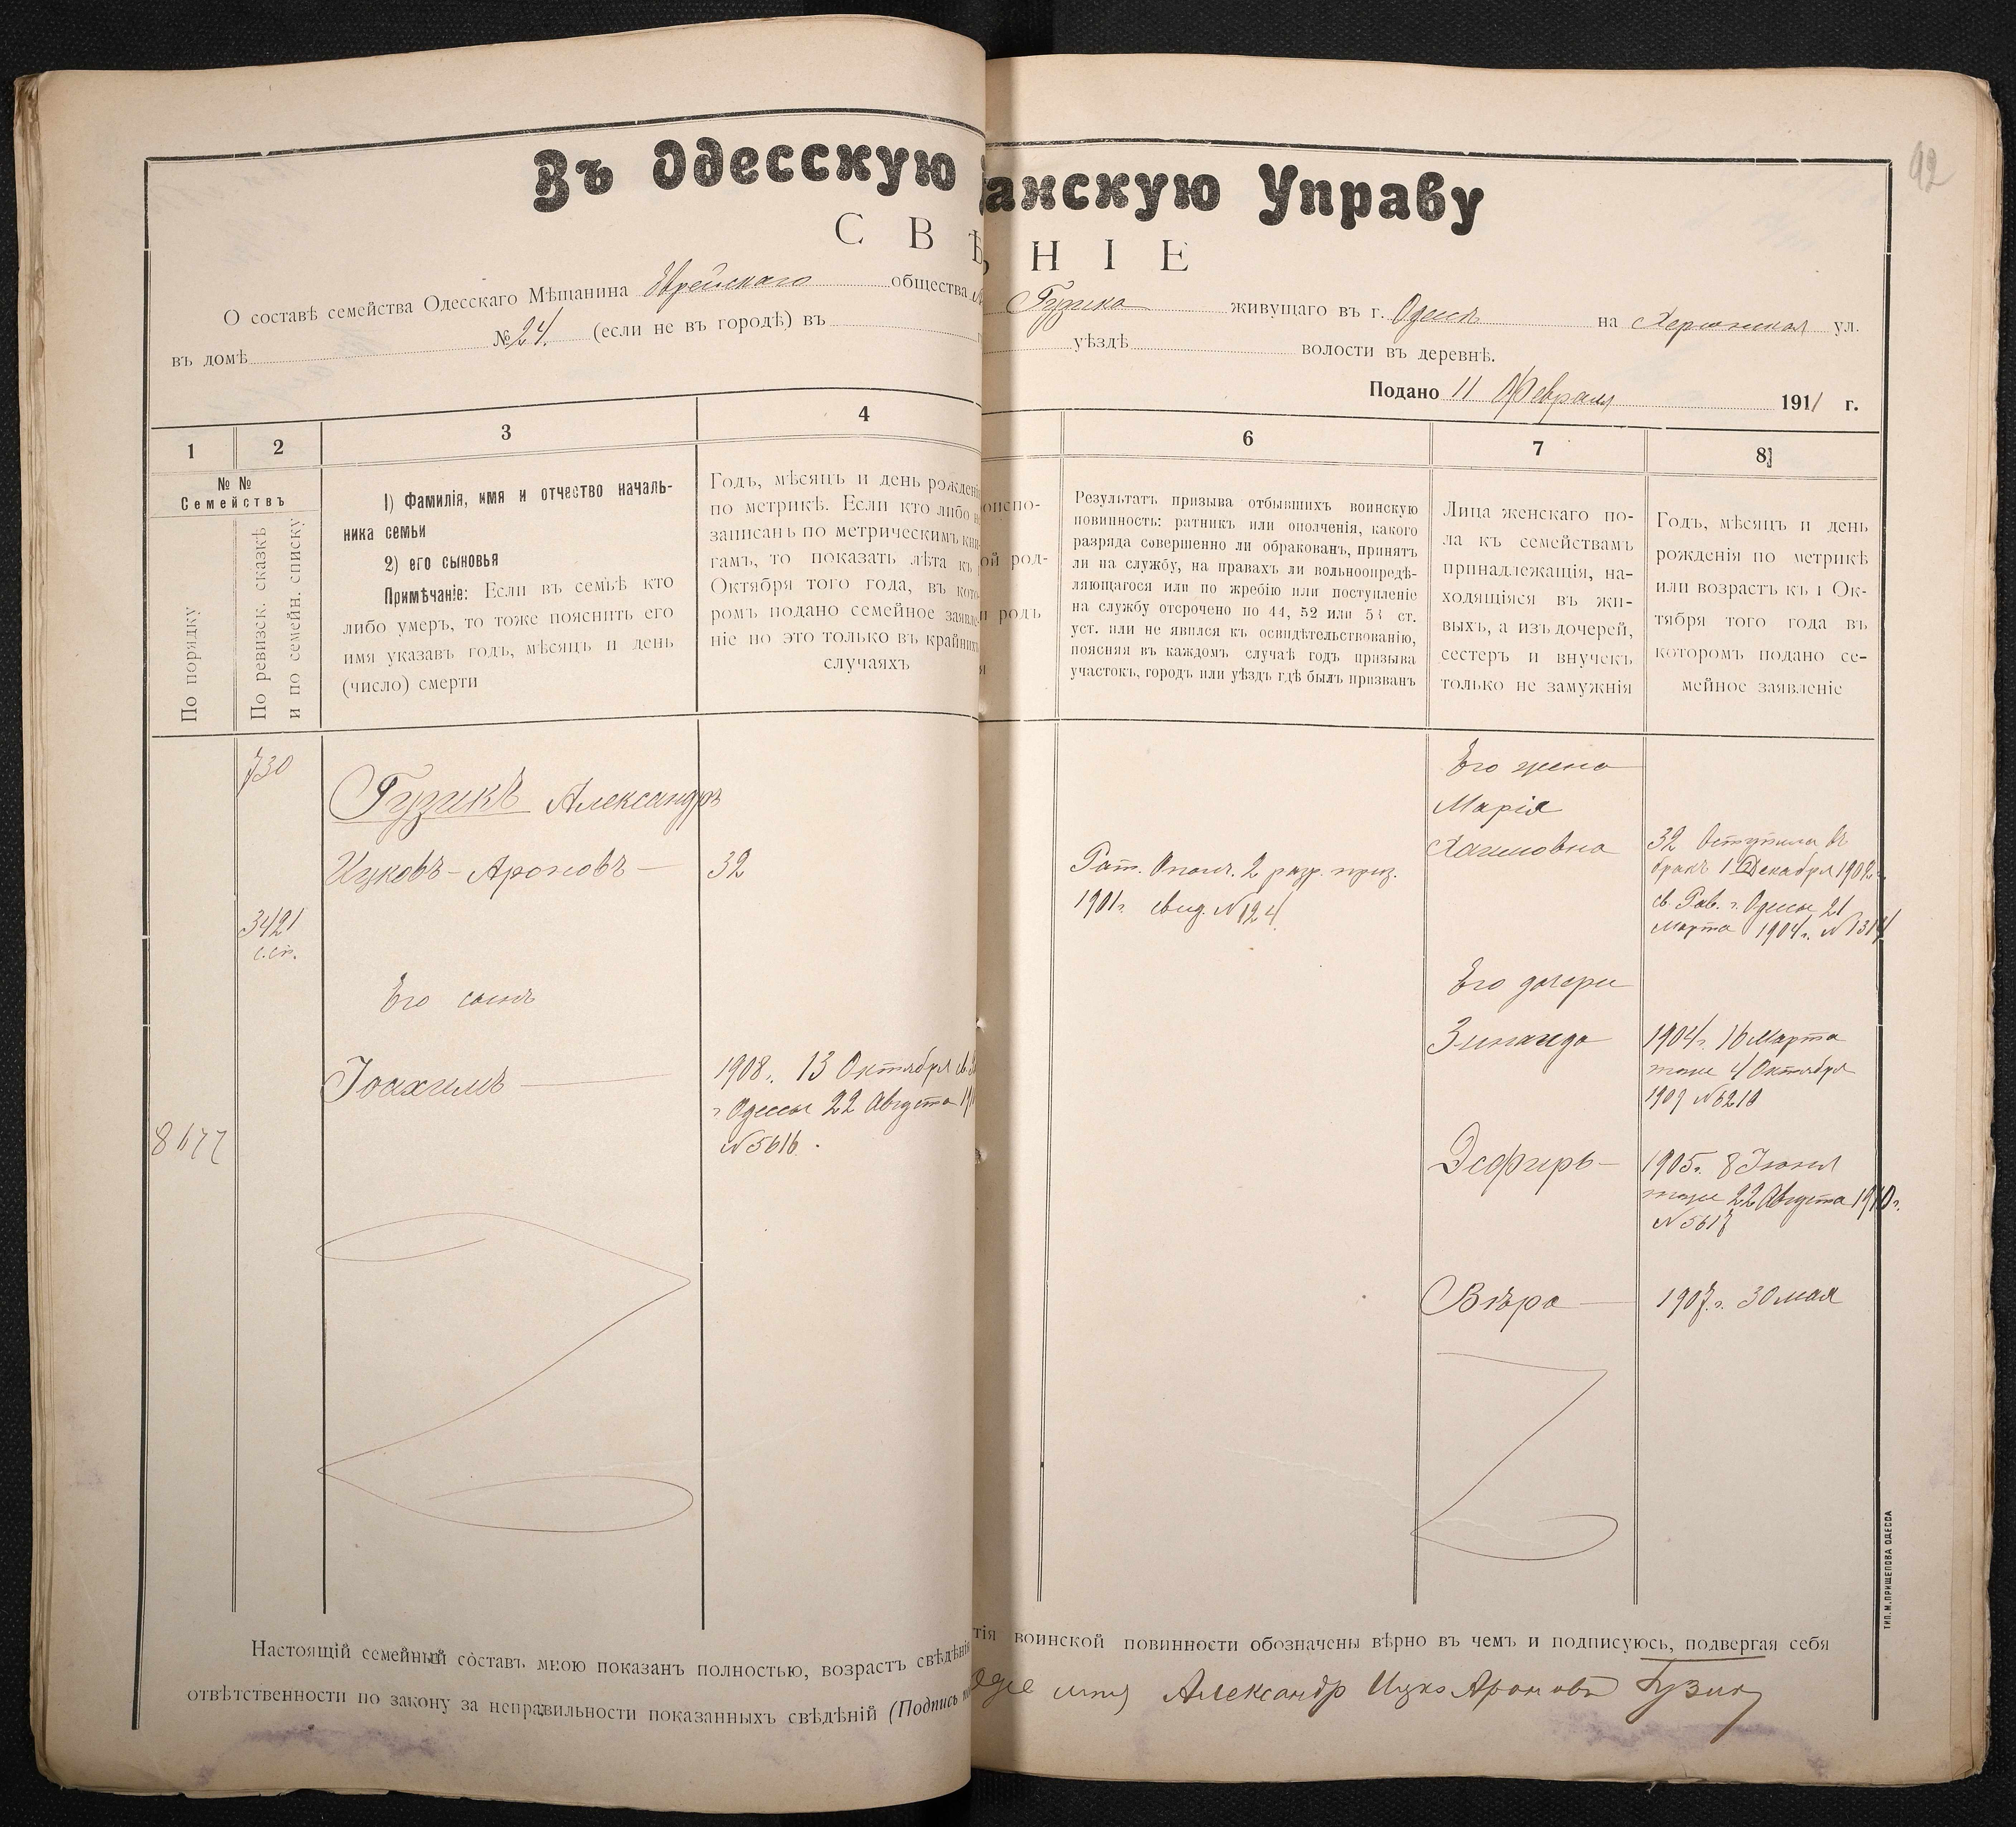 92
Въ Одесскую
анскую Управу
С В Ѣ
Н І Е
О составѣ семейства Одесскаго Мѣщанина Еврейскаго общества
Гузика живущаго въ г. Одессѣ на Херсонская ул.
въ домѣ № 24. (если не въ городѣ) въ
уѣздѣ волости въ деревнѣ.
Подано 11 Февраля 1911 г.
1 2 3 4
6 7 8
№ №
Семействъ
По порядку
По ревизск. сказкѣ
и по семейн. списку
1) Фамилія, имя и отчество началь-
ника семьи
2) его сыновья
Примѣчаніе: Если въ семьѣ кто
либо умеръ, то тоже пояснить его
имя указавъ годъ, мѣсяцъ и день
(число) смерти
Годъ, мѣсяцъ и день рожденія
по метрикѣ. Если кто либо не
записанъ по метрическимъ кни-
гамъ, то показать лѣта къ
Октября того года, въ кото-
ромъ подано семейное заявле-
ніе но это только въ крайнихъ
случаяхъ
ой род-
и родъ
я
Результатъ призыва отбывшихъ воинскую
повинность: ратникъ или ополченія, какого
разряда совершенно ли обракованъ, принятъ
ли на службу, на правахъ ли вольноопредѣ-
ляющагося или по жребію или поступленіе
на службу отсрочено по 44, 52 или 53 ст.
уст. или не явился къ освидѣтельствованію,
поясняя въ каждомъ случаѣ годъ призыва
участокъ, городъ или уѣздъ гдѣ былъ призванъ
Лица женскаго по-
ла къ семействамъ
принадлежащія, на-
ходящіяся въ жи-
выхъ, а изъ дочерей,
сестеръ и внучекъ
только не замужнія
Годъ, мѣсяцъ и день
рожденія по метрикѣ
или возрастъ къ 1 Ок-
тября того года въ
которомъ подано се-
мейное заявленіе
730
Гузикъ Александръ
Ицковъ-Ароновъ — 32
3421
с.сп.
Его сынъ
Іоахимъ — 1908г. 13 Октября св.
г Одессы 22 Августа
№5616.
8677
Рат. Ополч. 2 разр. приз.
1901г. свид. №124
Его жена
Марія
Хаимовна
32 Вступила въ
бракъ 12 Декабря 1902г.
св. Рав. г. Одессы 21
Марта 1904г. №1314
Его дочери
Зинаида 1904г. 16 Марта
тоже 4 Октября
1907 №6210
Эсфирь — 1905г. 8 Іюня
тоже 22 Августа 1910г.
№5617
Вѣра — 1907г. 30 мая
Настоящій семейный составъ мною показанъ полностью, возрастъ свѣдѣнія
тія воинской повинности обозначены вѣрно въ чемъ и подписуюсь, подвергая себя
отвѣтственности по закону за неправильности показанныхъ свѣдѣній (Подпись
Александр Ицко Ароновъ Гузик
ТИП. М. ПРИЩЕПОВА ОДЕССА